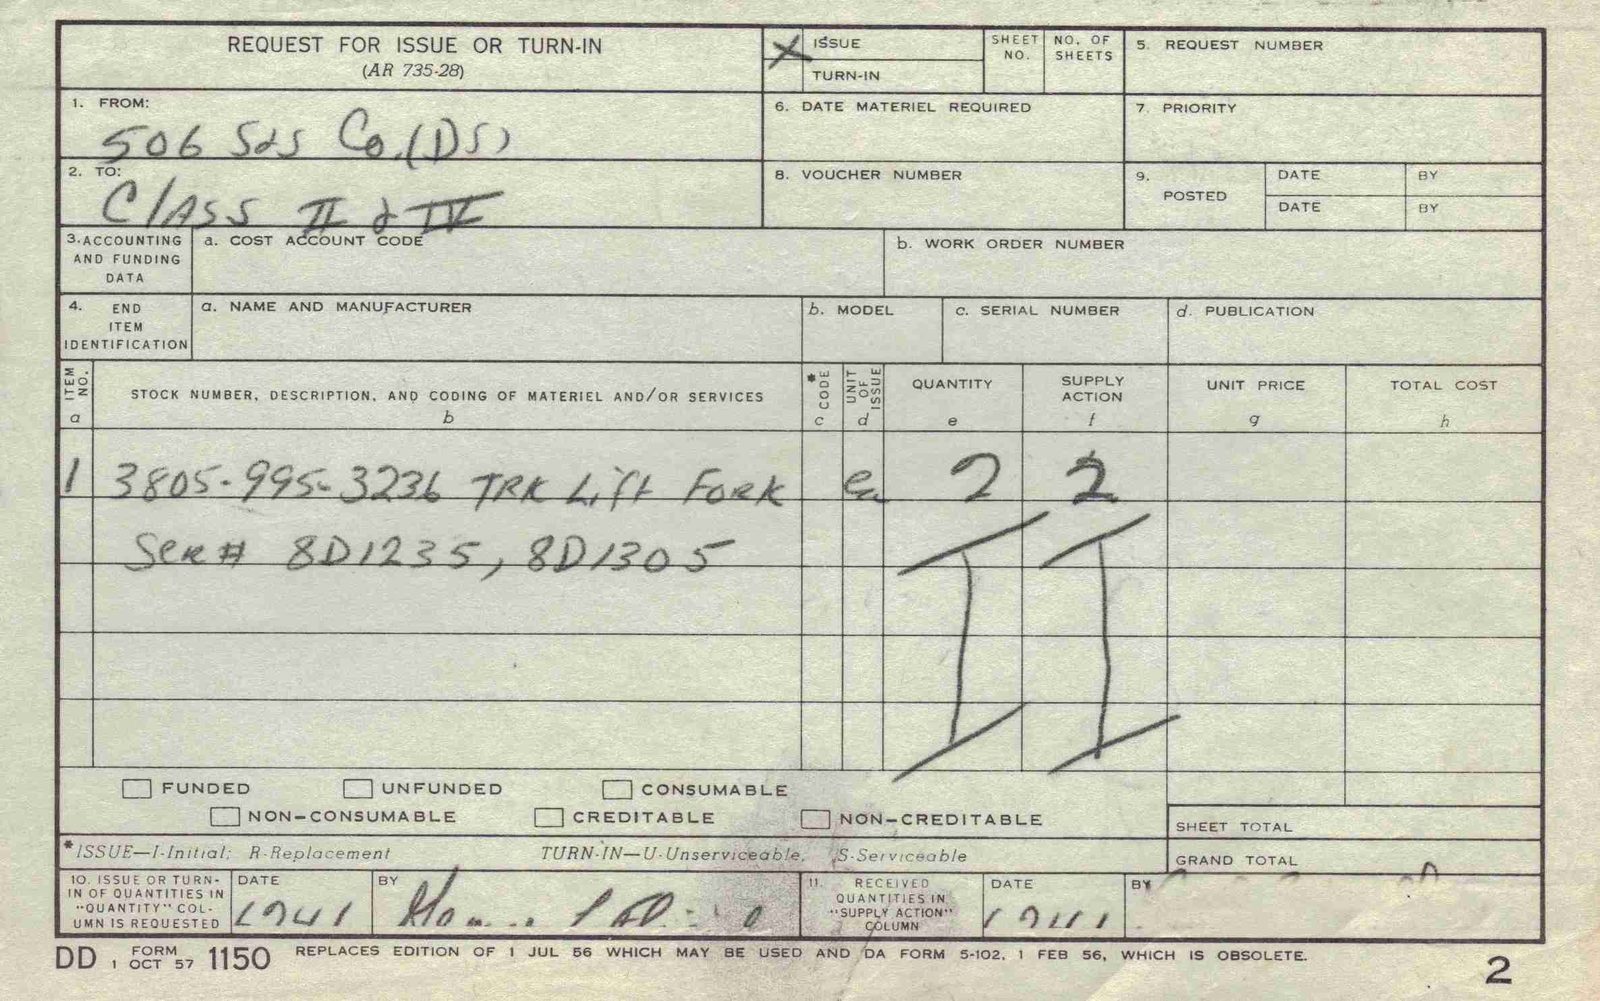 REQUEST FOR ISSUE OR TURN-IN
(AR 735-28)
X ISSUE
TURN-IN
SHEET NO.
NO. OF SHEETS
5. REQUEST NUMBER
1. FROM:
506 S&S Co. (DS)
6. DATE MATERIEL REQUIRED
7. PRIORITY
2. TO:
Class II & IV
8. VOUCHER NUMBER
9. POSTED
DATE BY
DATE BY
3. ACCOUNTING AND FUNDING DATA
a. COST ACCOUNT CODE
b. WORK ORDER NUMBER
4. END ITEM IDENTIFICATION
a. NAME AND MANUFACTURER
b. MODEL
c. SERIAL NUMBER
d. PUBLICATION
ITEM NO. a
STOCK NUMBER, DESCRIPTION, AND CODING OF MATERIEL AND/OR SERVICES b
* CODE c
UNIT OF ISSUE d
QUANTITY e
SUPPLY ACTION f
UNIT PRICE g
TOTAL COST h
1 3805-995-3236 TRK Lift Fork ea 2 2
Ser# 8D1235, 8D1305
FUNDED UNFUNDED CONSUMABLE
NON-CONSUMABLE CREDITABLE NON-CREDITABLE
SHEET TOTAL
*ISSUE—I-Initial; R-Replacement TURN-IN—U-Unserviceable, S-Serviceable
GRAND TOTAL
10. ISSUE OR TURN-IN OF QUANTITIES IN "QUANTITY" COLUMN IS REQUESTED
DATE
BY
11. RECEIVED QUANTITIES IN "SUPPLY ACTION" COLUMN
DATE
BY
DD FORM 1 OCT 57 1150 REPLACES EDITION OF 1 JUL 56 WHICH MAY BE USED AND DA FORM 5-102, 1 FEB 56, WHICH IS OBSOLETE.
2